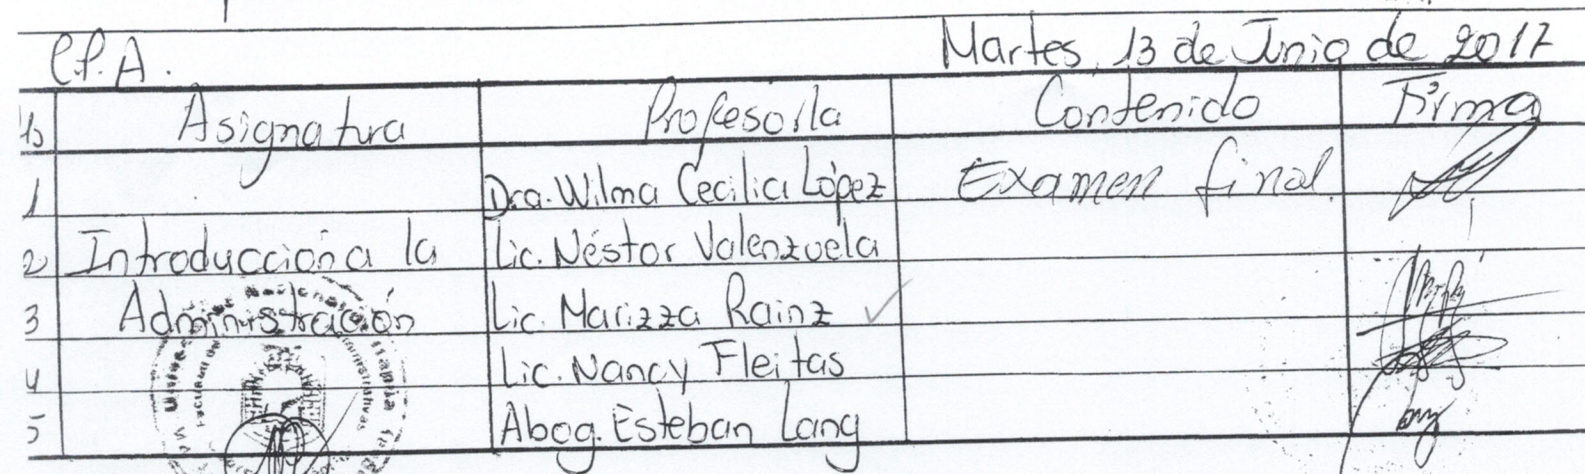 C.P.A. Martes, 13 de Junio de 2017
Hs Asignatura Profesor/a Contenido Firma
1 Dra. Wilma Cecilia López Examen final.
2 Introducción a la Lic. Néstor Valenzuela
3 Administración Lic. Marizza Rainz
4 Lic. Nancy Fleitas
5 Abog. Esteban Lang